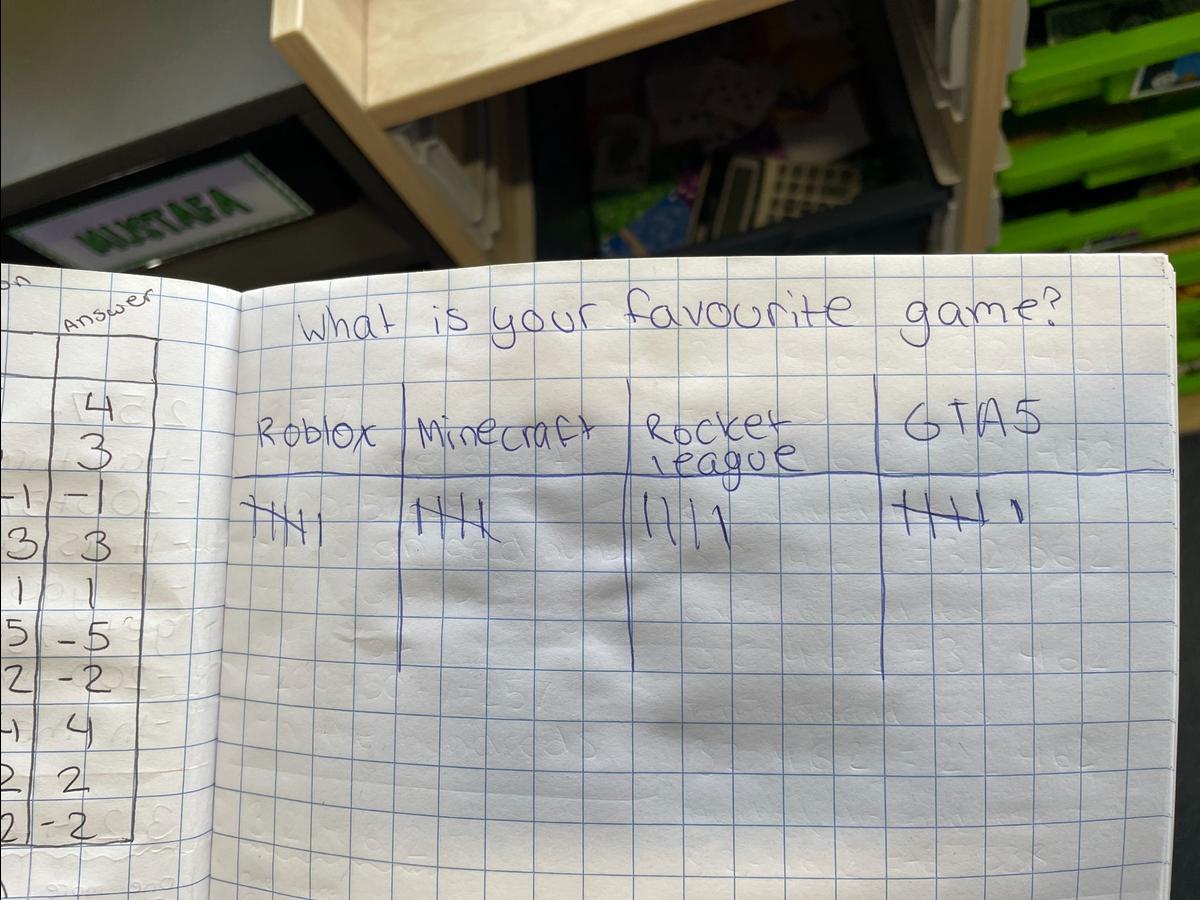 MUSTAFA
Answer
4
3
-1 -1
3 3
1 1
5 -5
2 -2
4
2 2
2 -2
What is your favourite game?
Roblox Minecraft Rocket league GTA5